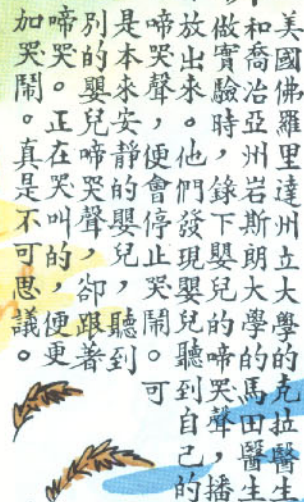 美國佛羅里達州立大學的克拉醫生
和喬治亞州岩斯朗大學的馬田醫生
做實驗時，錄下嬰兒的啼哭聲，播
放出來。他們發現嬰兒聽到自己的
啼哭聲，便會停止哭鬧。可
是本來安靜的嬰兒，聽到
別的嬰兒啼哭聲，卻跟著
啼哭。正在哭叫的，便更
加哭鬧。真是不可思議。